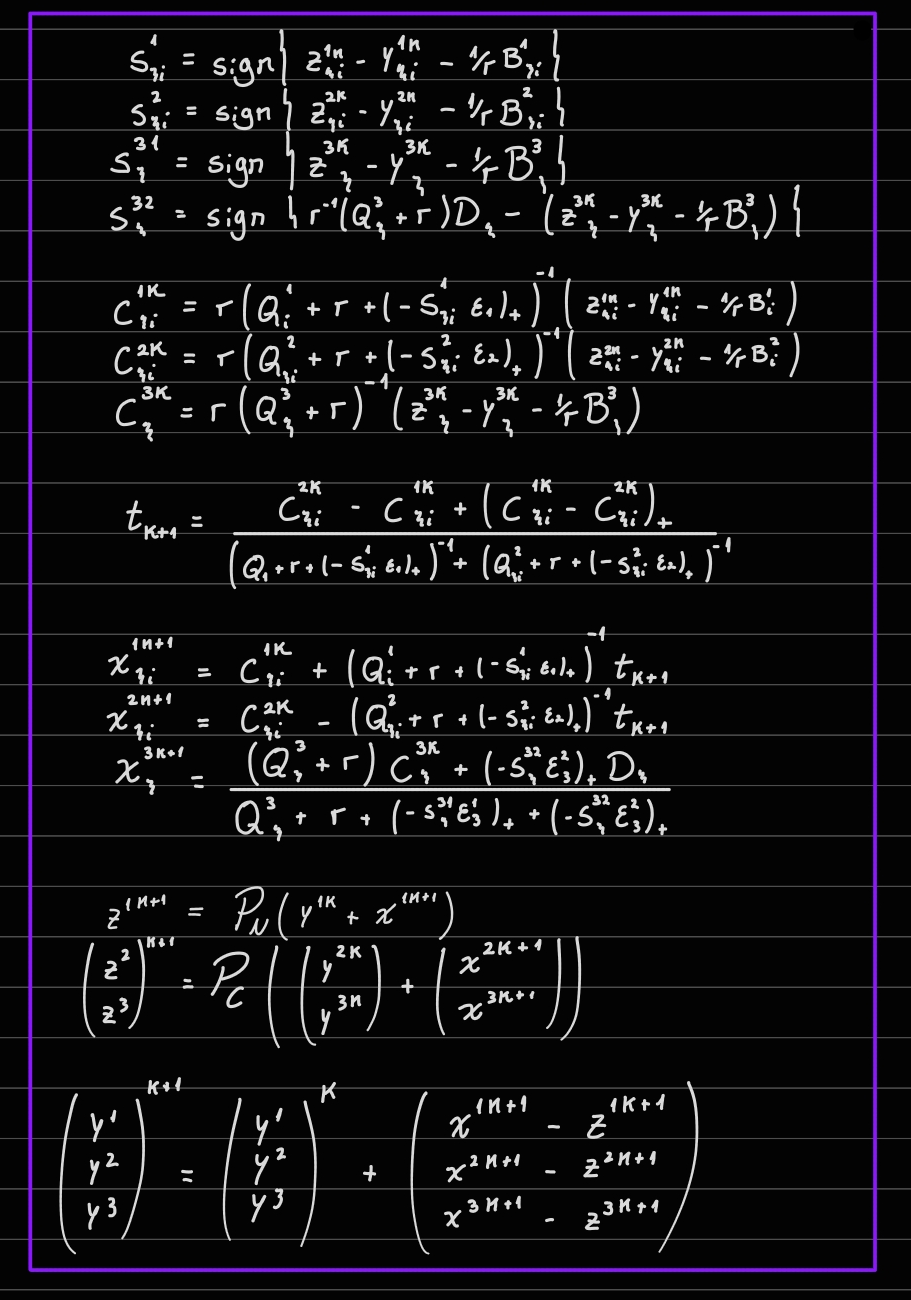 S^1_{ξi} = sign{ z^{1k}_{ξi} - y^{1k}_{ξi} - 1/r B^1_{ξi} }
S^2_{ξi} = sign{ z^{2k}_{ξi} - y^{2k}_{ξi} - 1/r B^2_{ξi} }
S^{31}_ξ = sign { z^{3k}_ξ - y^{3k}_ξ - 1/r B^3_ξ }
S^{32}_ξ = sign { r^{-1}(Q^3_ξ + r)D_ξ - (z^{3k}_ξ - y^{3k}_ξ - 1/r B^3_ξ) }
C^{1k}_{ξi} = r (Q^1_i + r + (-S^1_{ξi} ε_1)_+)^{-1} ( z^{1k}_{ξi} - y^{1k}_{ξi} - 1/r B^1_i )
C^{2k}_{ξi} = r (Q^2_{ξi} + r + (-S^2_{ξi} ε_2)_+)^{-1} ( z^{2k}_{ξi} - y^{2k}_{ξi} - 1/r B^2_i )
C^{3k}_ξ = r (Q^3_ξ + r)^{-1} ( z^{3k}_ξ - y^{3k}_ξ - 1/r B^3_ξ )
t_{k+1} = \frac{C^{2k}_{ξi} - C^{1k}_{ξi} + (C^{1k}_{ξi} - C^{2k}_{ξi})_+}{(Q_1 + r + (-S^1_{ξi} ε_1)_+)^{-1} + (Q^2_{ξi} + r + (-S^2_{ξi} ε_2)_+)^{-1}}
x^{1k+1}_{ξi} = C^{1k}_{ξi} + (Q^1_i + r + (-S^1_{ξi} ε_1)_+)^{-1} t_{k+1}
x^{2k+1}_{ξi} = C^{2k}_{ξi} - (Q^2_{ξi} + r + (-S^2_{ξi} ε_2)_+)^{-1} t_{k+1}
x^{3k+1}_ξ = \frac{(Q^3_ξ + r) C^{3k}_ξ + (-S^{32}_ξ ε^2_3)_+ D_ξ}{Q^3_ξ + r + (-S^{31}_ξ ε^1_3)_+ + (-S^{32}_ξ ε^2_3)_+}
z^{1k+1} = P_N ( y^{1k} + x^{1k+1} )
\begin{pmatrix} z^2 \\ z^3 \end{pmatrix}^{k+1} = P_C ( \begin{pmatrix} y^{2k} \\ y^{3k} \end{pmatrix} + \begin{pmatrix} x^{2k+1} \\ x^{3k+1} \end{pmatrix} )
\begin{pmatrix} y^1 \\ y^2 \\ y^3 \end{pmatrix}^{k+1} = \begin{pmatrix} y^1 \\ y^2 \\ y^3 \end{pmatrix}^k + \begin{pmatrix} x^{1k+1} - z^{1k+1} \\ x^{2k+1} - z^{2k+1} \\ x^{3k+1} - z^{3k+1} \end{pmatrix}